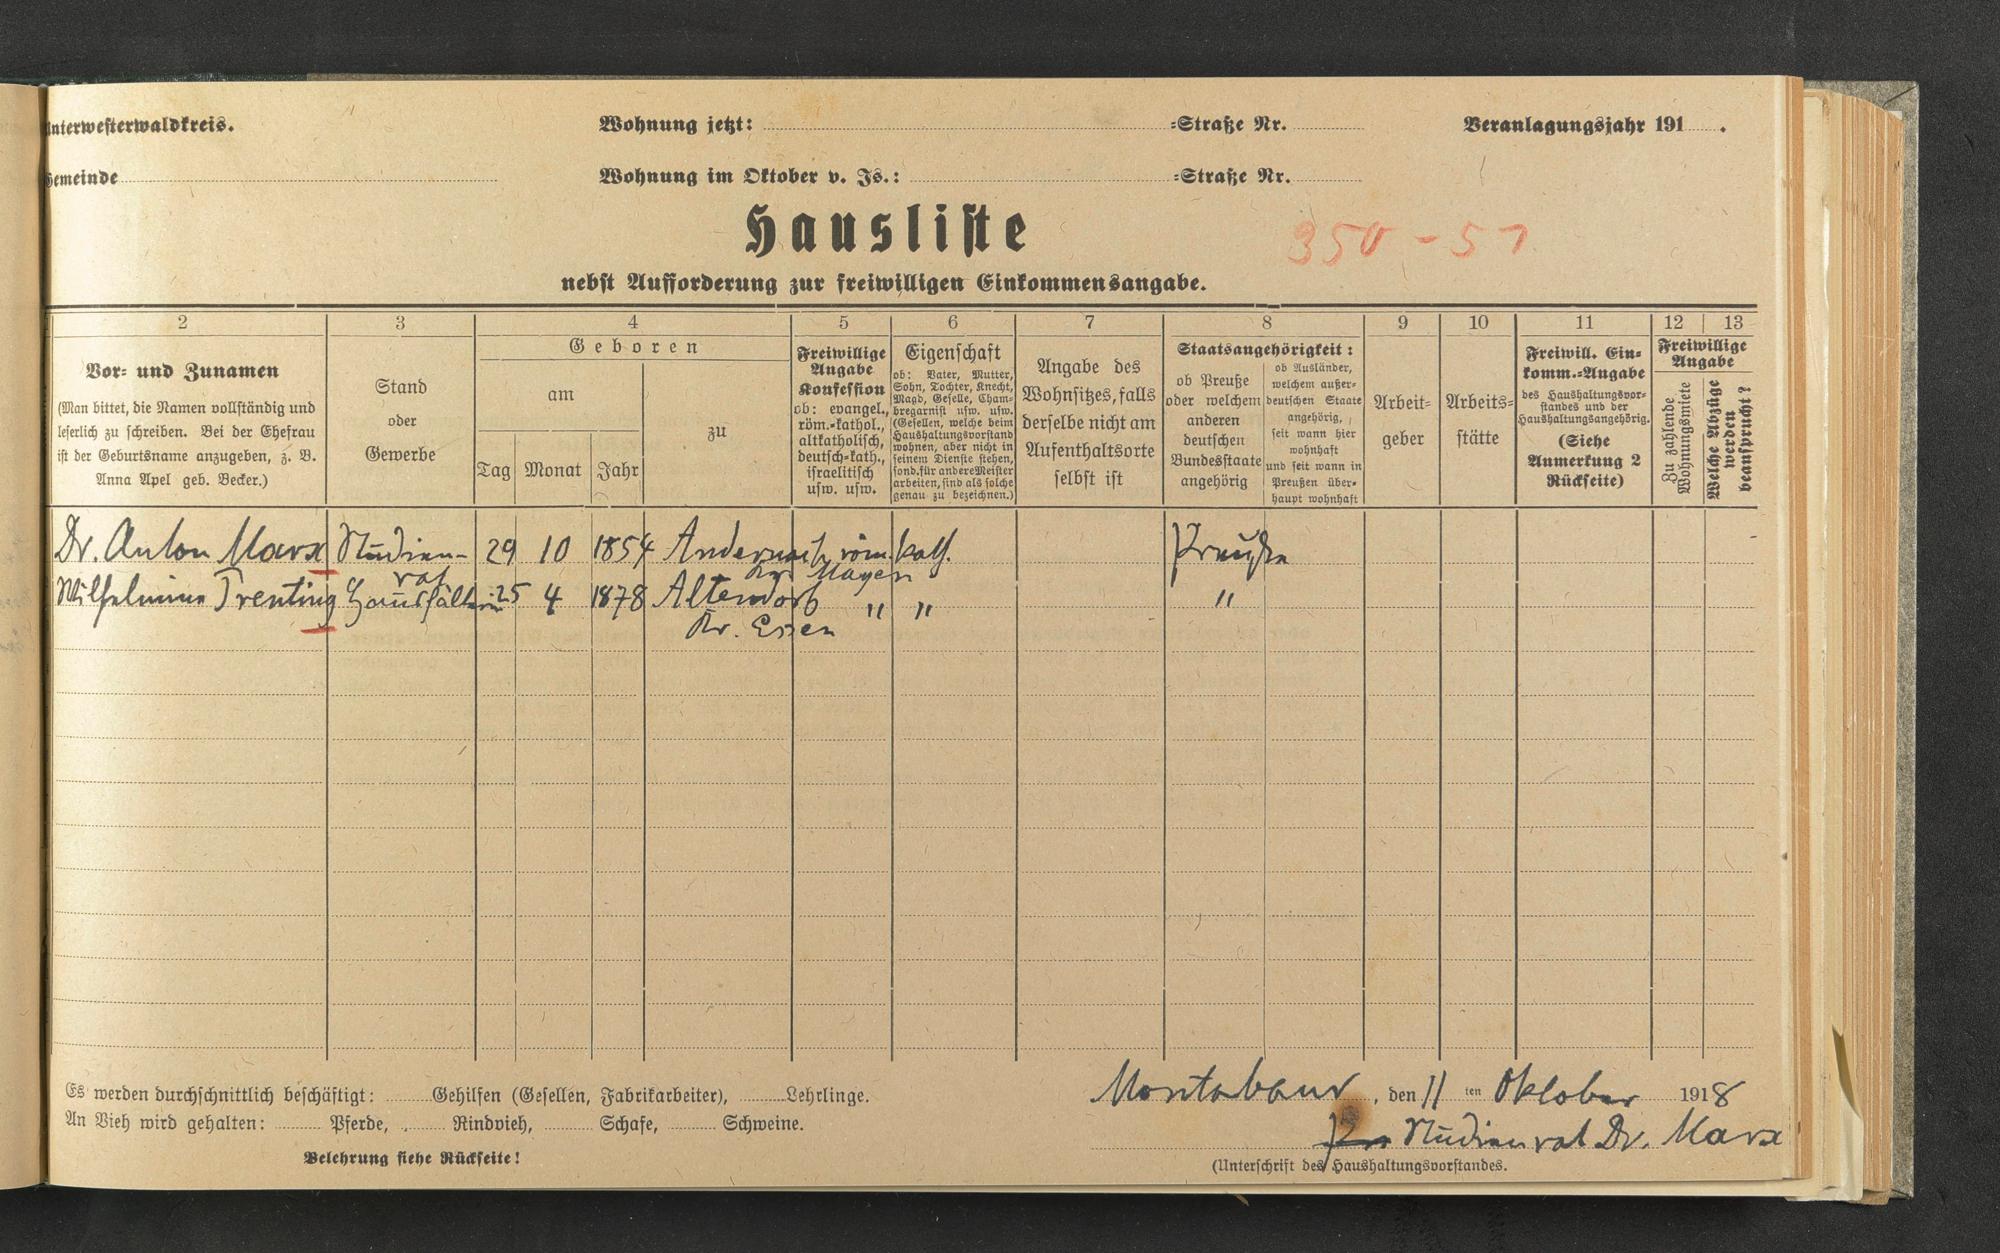 Unterwesterwaldkreis. Wohnung jetzt: =Straße Nr. Veranlagungsjahr 191 .
Gemeinde Wohnung im Oktober v. Js.: =Straße Nr.
Hausliste
350-51
nebst Aufforderung zur freiwilligen Einkommensangabe.
2 3 4 5 6 7 8 9 10 11 12 13
Vor- und Zunamen
(Man bittet, die Namen vollständig und
leserlich zu schreiben. Bei der Ehefrau
ist der Geburtsname anzugeben, z. B.
Anna Apel geb. Becker.)
Stand
oder
Gewerbe
Geboren
am
Tag Monat Jahr
zu
Freiwillige
Angabe
Konfession
ob: evangel.,
röm.-kathol.,
altkatholisch,
deutsch-kath.,
israelitisch
usw. usw.
Eigenschaft
ob: Vater, Mutter,
Sohn, Tochter, Knecht,
Magd, Geselle, Cham-
bregarnist usw. usw.
(Gesellen, welche beim
Haushaltungsvorstand
wohnen, aber nicht in
seinem Dienste stehen,
sond. für andere Meister
arbeiten, sind als solche
genau zu bezeichnen.)
Angabe des
Wohnsitzes, falls
derselbe nicht am
Aufenthaltsorte
selbst ist
Staatsangehörigkeit:
ob Preuße
oder welchem
anderen
deutschen
Bundesstaate
angehörig
ob Ausländer,
welchem außer-
deutschen Staate
angehörig,
seit wann hier
wohnhaft
und seit wann in
Preußen über-
haupt wohnhaft
Arbeit-
geber
Arbeits-
stätte
Freiwill. Ein-
komm.-Angabe
des Haushaltungsvor-
standes und der
Haushaltungsangehörig.
(Siehe
Anmerkung 2
Rückseite)
Freiwillige
Angabe
Zu zahlende
Wohnungsmiete
Welche Abzüge
werden
beansprucht?
Dr. Anton Marx Studien- 29 10 1854 Andernach röm. kath. Preuße
rat Kr. Mayen
Wilhelmine Trenting Haushälterin 25 4 1878 Altendorf " " "
Kr. Essen
Es werden durchschnittlich beschäftigt: Gehilfen (Gesellen, Fabrikarbeiter), Lehrlinge.
An Vieh wird gehalten: Pferde, Rindvieh, Schafe, Schweine.
Belehrung siehe Rückseite!
Montabaur, den 11 ten Oktober 1918
Studienrat Dr. Marx
(Unterschrift des Haushaltungsvorstandes.